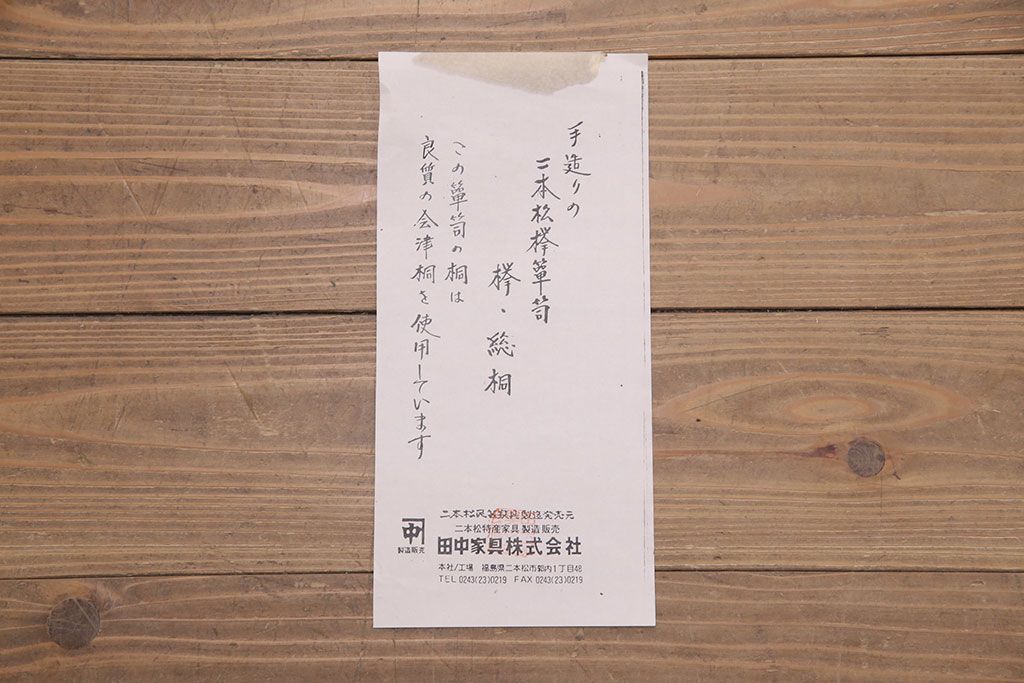 手造りの
二本松欅簞笥
欅・総桐
この簞笥の桐は
良質の会津桐を使用しています
二本松民芸家具製造発売元
二本松特産家具製造販売
田中家具株式会社
製造販売
本社/工場 福島県二本松市郭内1丁目48
TEL 0243(23)0219 FAX 0243(23)0219